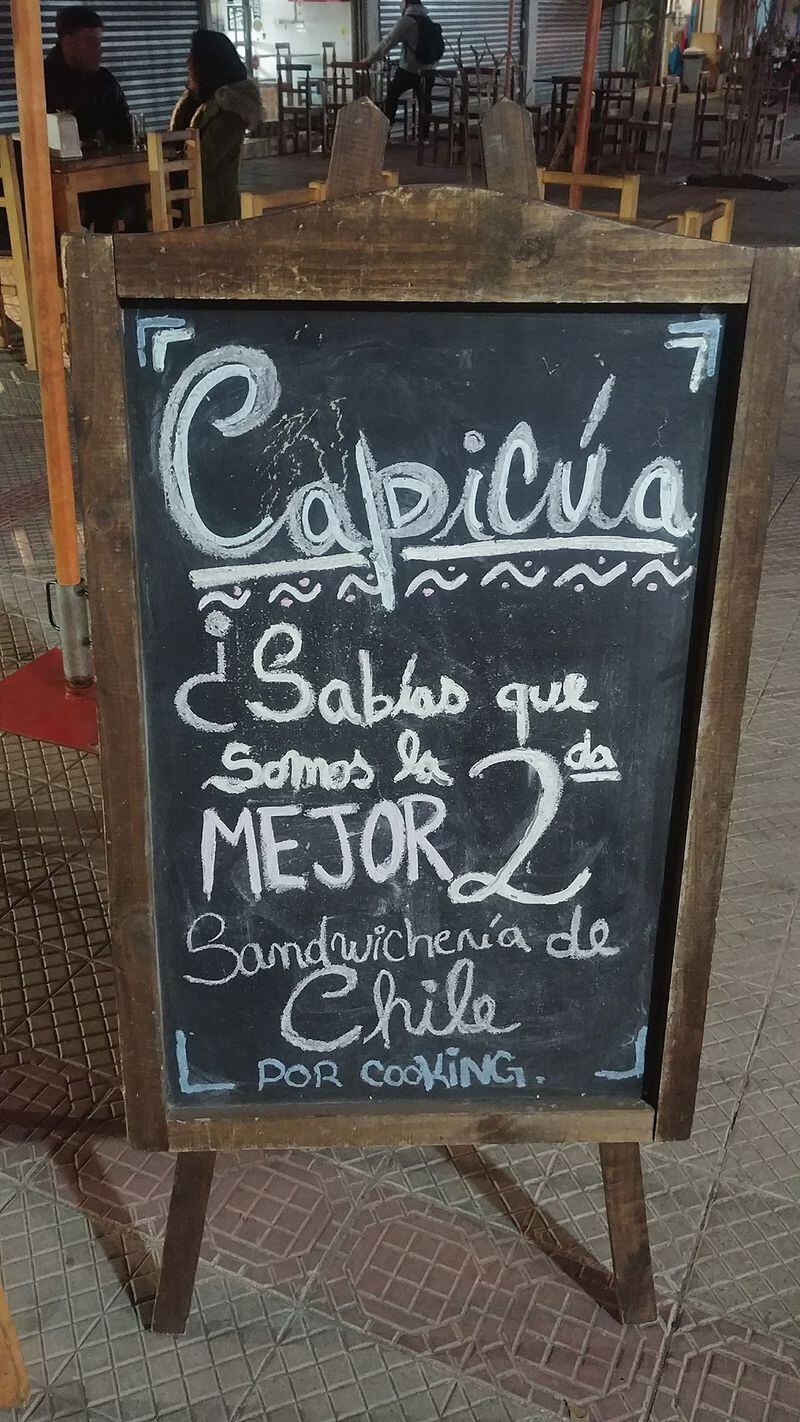 Capicúa
¿Sabías que
somos la 2da
MEJOR
Sandwichería de
Chile
POR COOKING.